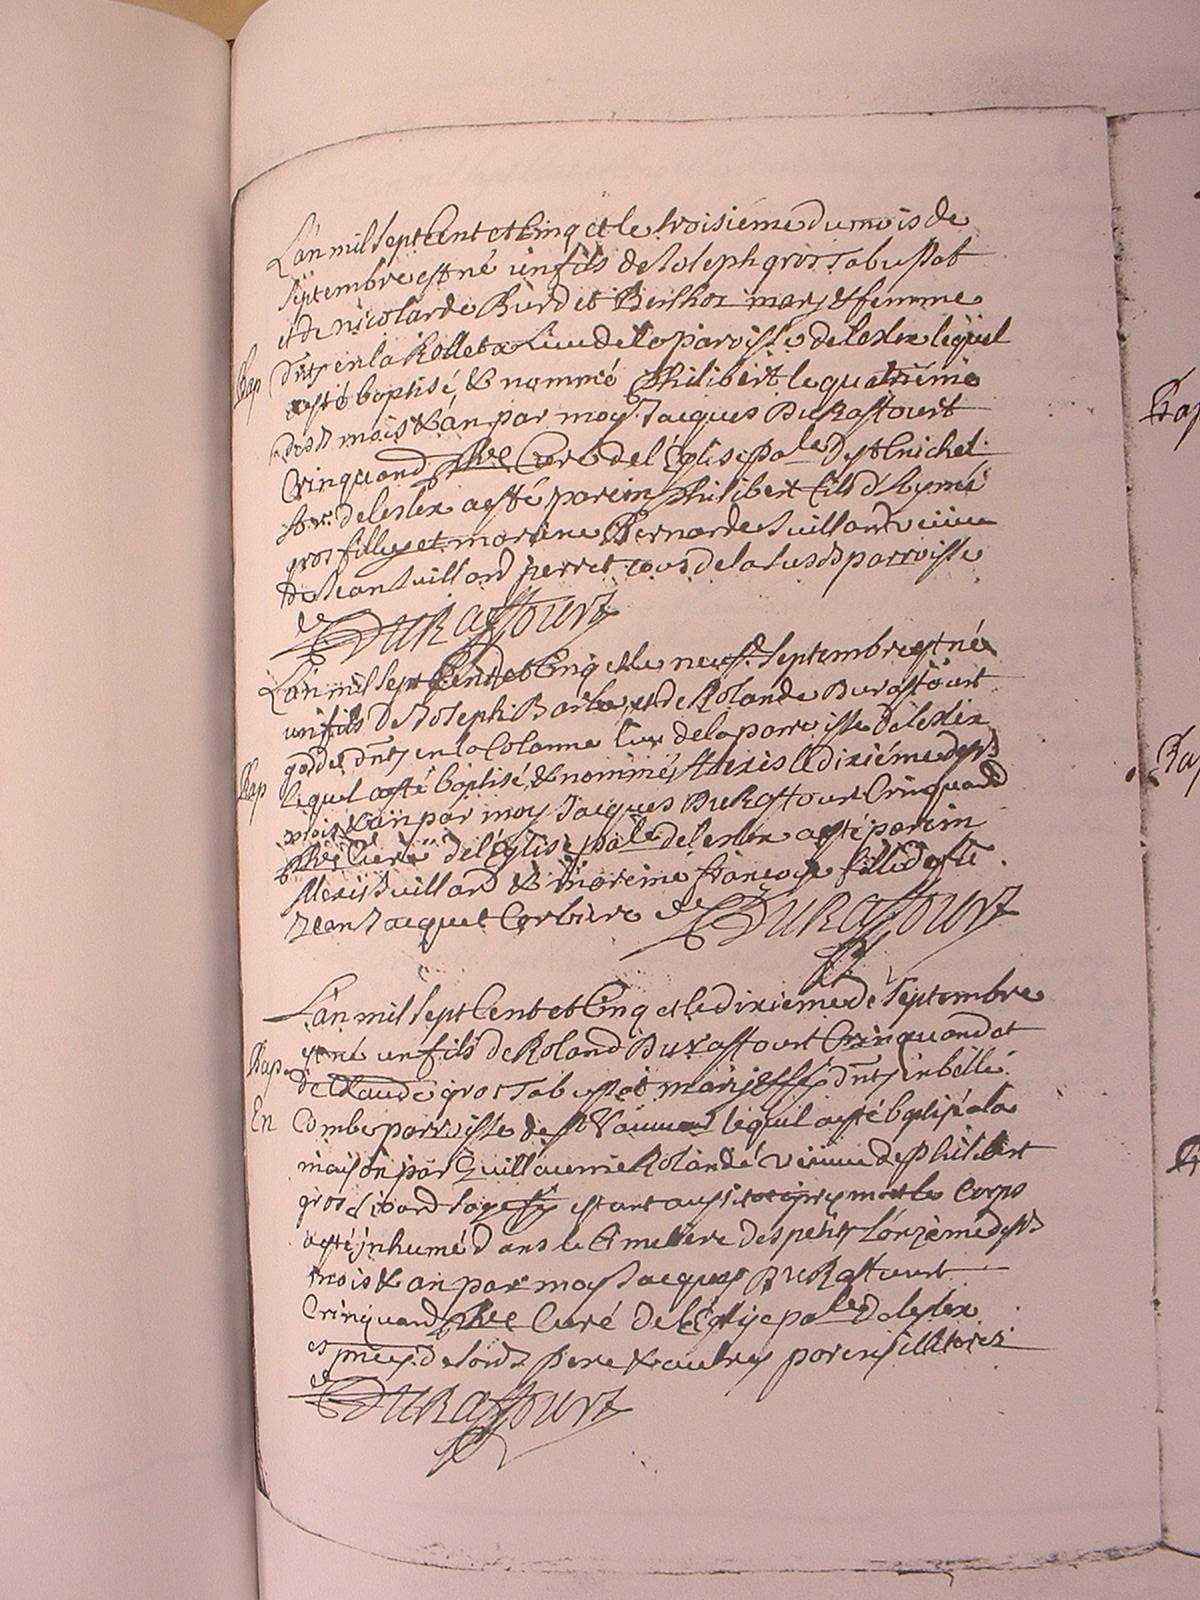 L'an mil sept Cent et Cinq et le troisiéme du mois de
Septembre est né un fils de Joseph gros Tabussat
et de nicolarde Burdet Berthoz mary & femme
dntz en la Rolleta Lieu de la paroisse de leslex lequel
a esté baptisé, & nommé Philibert le quatriéme
Bap
mois & an par moy Jacques Duraffourt
Crinquand pbre Curé de l'Église pale de St
de leslex a esté parein Philibert fils d'Aymé
gros filley et mareine Bernarde Vuillard veuve
de Jean Vuillard perret tous de la susd parroisse
Duraffourt
L'an mil sept Cent et Cinq et le neuf Septembre est né
un fils de Joseph Barbe, et de Rolande Duraffourt
dntz en la Colanne lieu de la parroisse de leslex
Bap
lequel a esté baptisé, & nommé Alexis le dixiéme desds
mois & an par moy Jacques Duraffourt Crinquand
pbre Curé de l'Église pale de leslex a esté parein
Alexis Vuillard & mareine françoise fille de feu
Jean Jacquet Corbiere
Duraffourt
L'an mil sept Cent et Cinq et le dixiéme de Septembre
est né un fils de Roland Duraffourt Crinquand et
Bap
de Claude gros Tabussat mary & fe dntz en belle
En
Combe parroisse de lequel a esté baptisé a la
maison par Guillaume Rolande veuve de Philibert
gros sage fe estant aussitot apres mort le Corps
a esté inhumé dans le Cimetiere des petits L'onzéme desds
mois & an par moy Jacques Duraffourt
Crinquand pbre Curé de l'Église pale de leslex
es pnces de pere & autres parens
Duraffourt